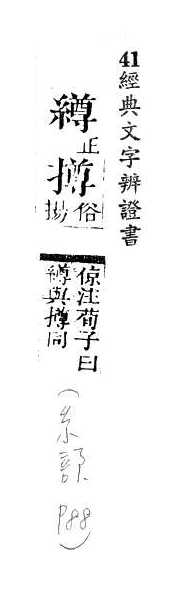 41經典文字辨證書
繜正撙俗揚
倞注荀子曰
繜與撙同
(糸部 P88)